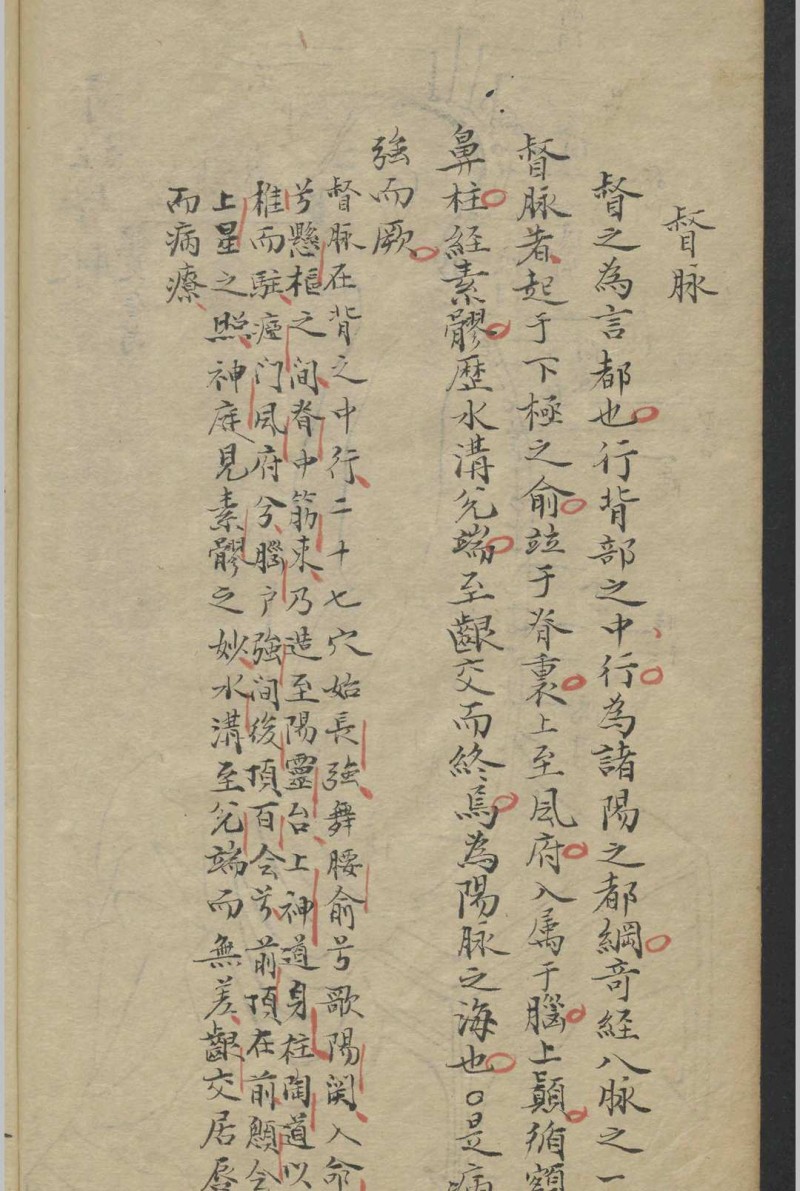 督脉
督之為言都也行背部之中行為諸陽之都綱奇經八脉之一
督脉者起于下極之俞竝于脊裏上至風府入属于腦上顛循額
鼻柱經素髎歷水溝兊端至齦交而終焉為陽脉之海也○是病
強而厥
督脉在背之中行二十七穴始長強舞腰俞兮歌陽関入命
兮懸樞之间脊中筋束乃造至陽靈台上神道身柱陶道以
椎而駐瘂门風府兮腦户強间後頂百会兮前頂在前顖会
上星之照神庭見素髎之妙水溝至兊端而無差齦交居唇
而病療